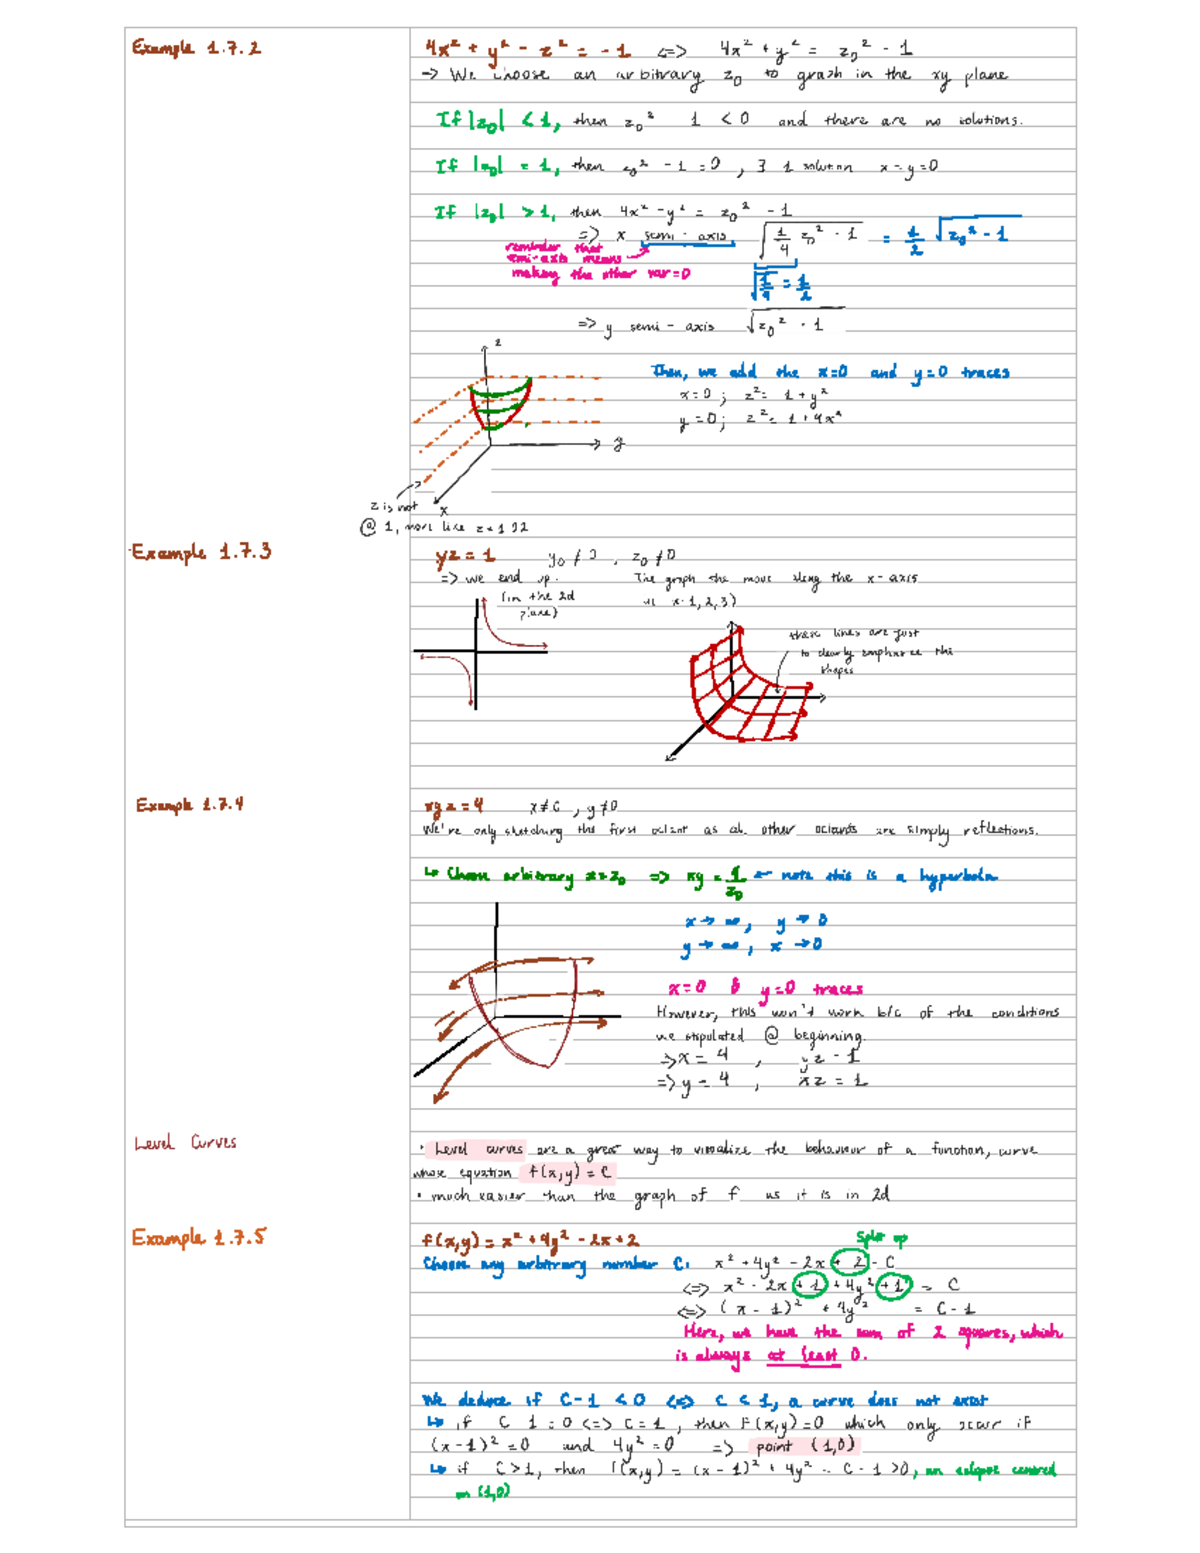 Example 1.7.2
4x² + y² - z² = -1 <=> 4x² + y² = z₀² - 1
-> We choose an arbitrary z₀ to graph in the xy plane
If |z₀| < 1, then z₀² 1 < 0 and there are no solutions.
If |z₀| = 1, then z₀² - 1 = 0 , ∃ 1 solution x = y = 0
If |z₀| > 1, then 4x² - y² = z₀² - 1
=> x semi-axis √(1/4 z₀² - 1) = 1/2 √(z₀² - 1)
reminder that
semi-axis means
making the other var=0
√(1/4) = 1/2
=> y semi-axis √(z₀² - 1)
z
Then, we add the x=0 and y=0 traces
x=0 ; z² = 1 + y²
y=0 ; z² = 1 + 4x²
y
z is not
x
@ 1, more like z=1.02
Example 1.7.3
yz = 1 y₀ ≠ 0 , z₀ ≠ 0
=> we end up.
(in the 2d
plane)
The graph the move along the x-axis
x=1,2,3)
these lines are just
to clearly emphasize the
shapes
Example 1.7.4
xyz = 4 x≠0 , y≠0
We're only sketching the first octant as all other octants are simply reflections.
↳ Choose arbitrary z=z₀ => xy = 1/z₀ ← note this is a hyperbola
x → ∞, y → 0
y → ∞, x → 0
x=0 & y=0 traces
However, this won't work b/c of the conditions
we stipulated @ beginning.
=> x = 4 , yz = 1
=> y = 4 , xz = 1
Level Curves
• Level curves are a great way to visualize the behaviour of a function, curve
whose equation f(x,y) = C
• much easier than the graph of f as it is in 2d
Example 1.7.5
f(x,y) = x² + 4y² - 2x + 2
Split up
Choose any arbitrary number C: x² + 4y² - 2x + 2 = C
<=> x² - 2x + 1 + 4y² + 1 = C
<=> (x - 1)² + 4y² = C - 1
Here, we have the sum of 2 squares, which
is always at least 0.
We deduce if C-1 < 0 <=> C < 1, a curve does not exist
↳ if C 1 = 0 <=> C = 1 , then F(x,y) = 0 which only occur if
(x-1)² = 0 and 4y² = 0 => point (1,0)
↳ if C > 1, then f(x,y) = (x - 1)² + 4y² = C - 1 > 0, an ellipse centred
on (1,0)